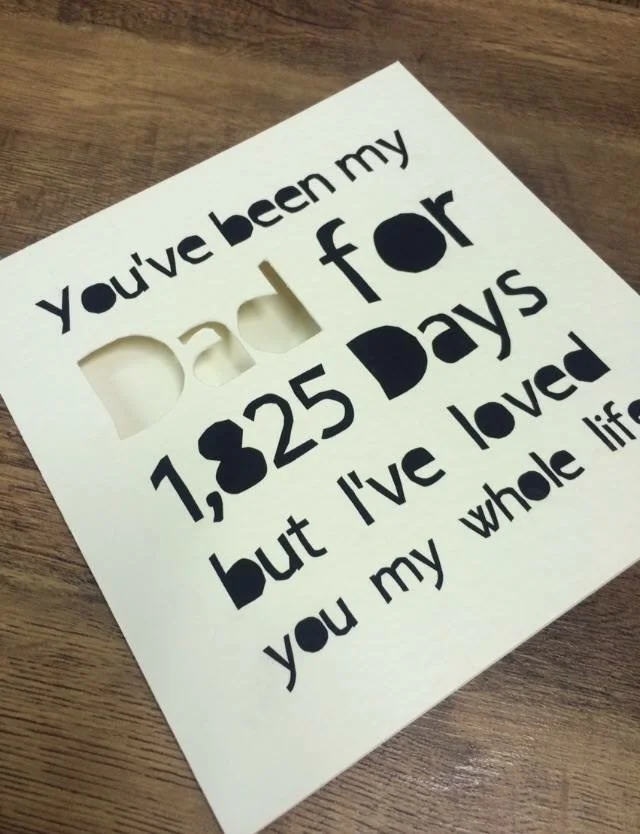 You've been my
Dad for
1,825 Days
but I've loved
you my whole life